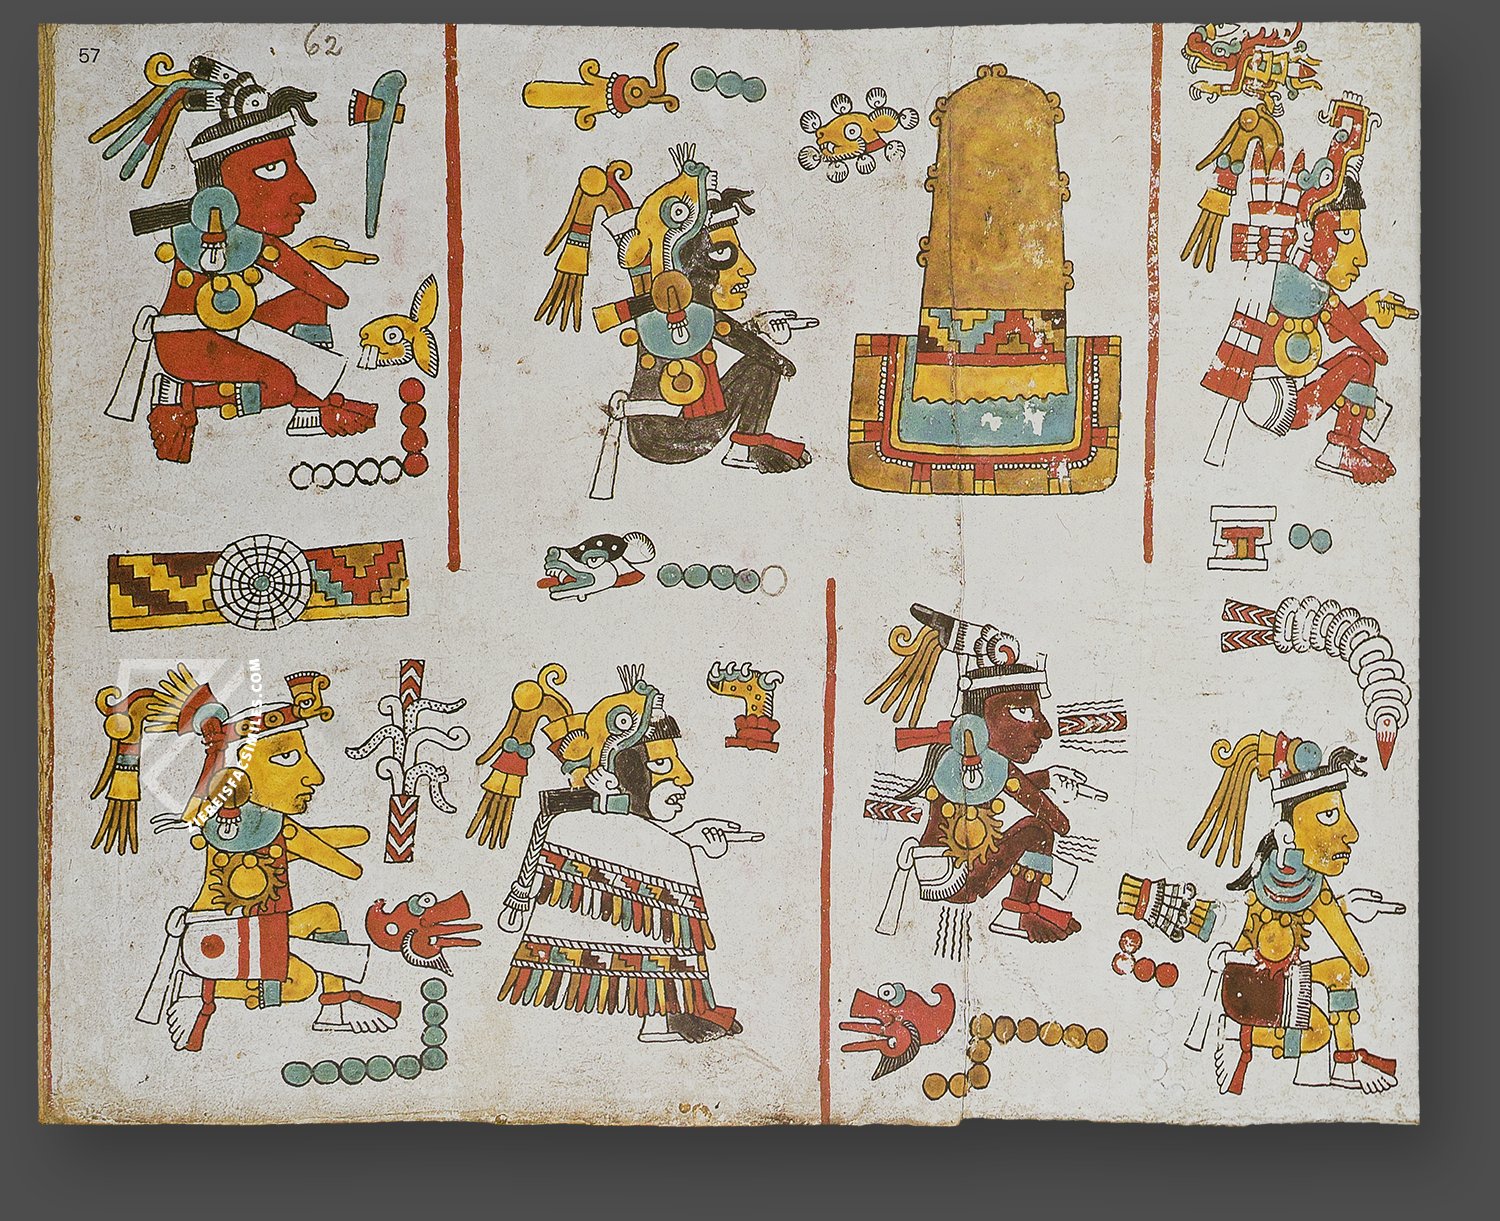 57
62
ZIEREISFACSIMILES.COM